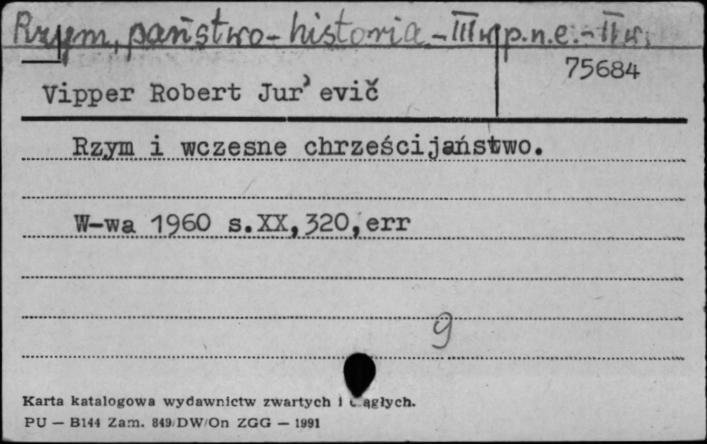 Rzym, państwo - historia - III w p.n.e. - II w.
75684
Vipper Robert Jur'evič
Rzym i wczesne chrześcijaństwo.
W-wa 1960 s.XX,320,err
9
Karta katalogowa wydawnictw zwartych i ciągłych.
PU — B144 Zam. 849/DW/On ZGG — 1991